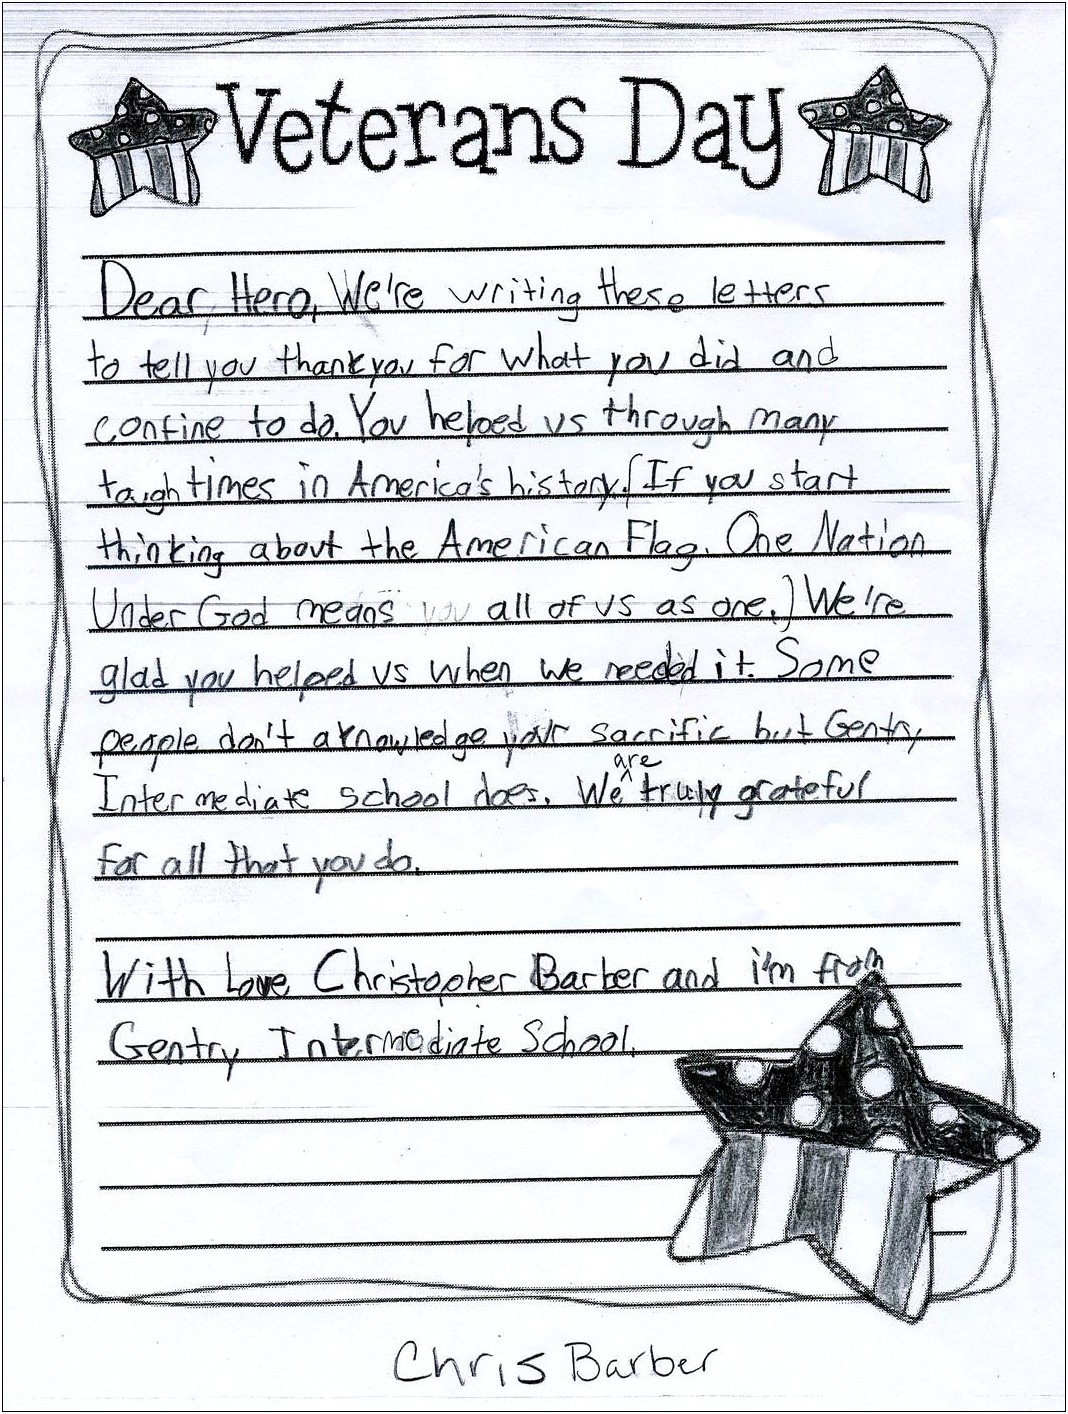 Veterans Day
Dear, Hero, We're writing these letters
to tell you thankyou for what you did and
contine to do. You helped us through many
taugh times in America's history. (If you start
thinking about the American Flag. One Nation
Under God means you all of us as one.) We're
glad you helped us when we needed it. Some
people don't aknowledge your sacrific but Gentry
are
Intermediate school does. We ^ truly grateful
for all that you do.
With Love Christopher Barber and i'm from
Gentry Intermediate School.
Chris Barber